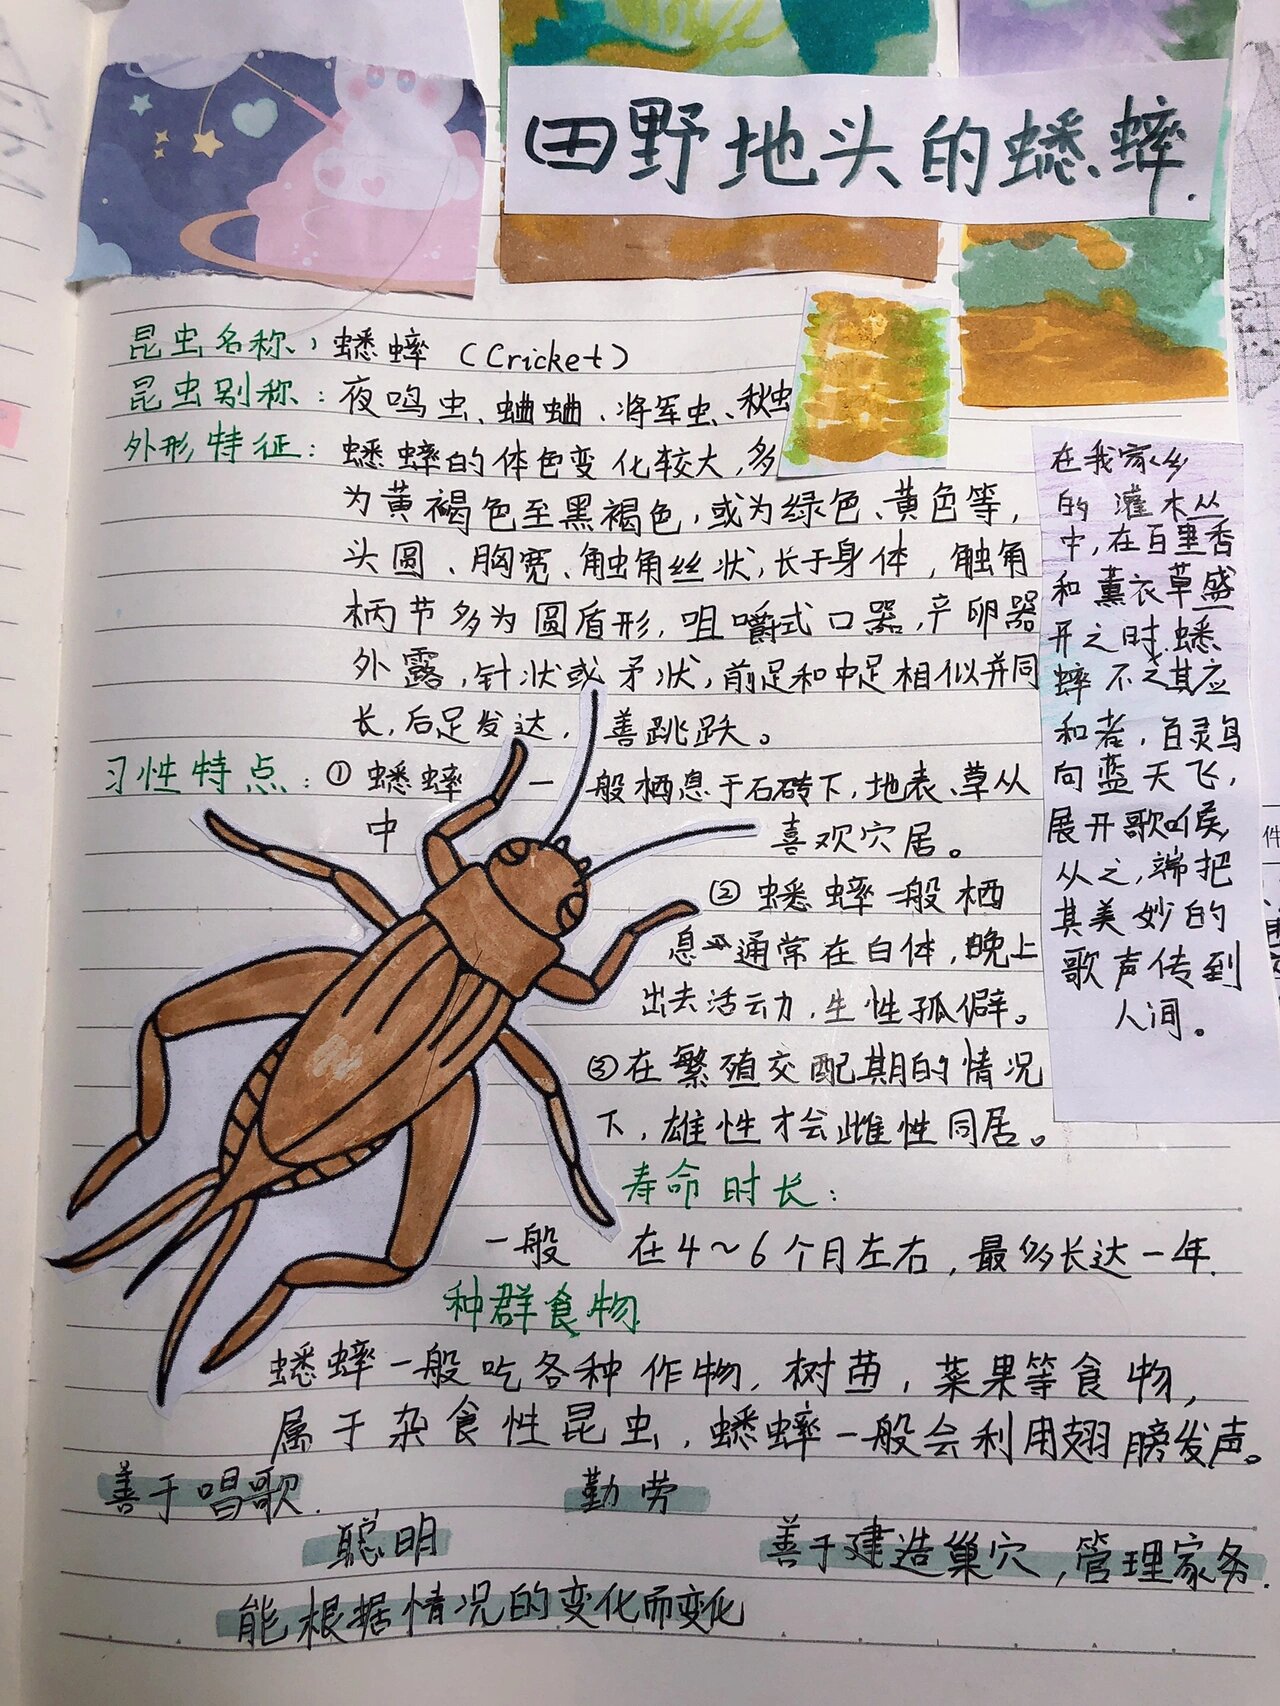 田野地头的蟋蟀.
昆虫名称：蟋蟀（Cricket）
昆虫别称：夜鸣虫、蛐蛐、将军虫、秋虫
外形特征：蟋蟀的体色变化较大，多
为黄褐色至黑褐色，或为绿色、黄色等，
头圆、胸宽、触角丝状，长于身体，触角
柄节多为圆盾形，咀嚼式口器，产卵器
外露，针状或矛状，前足和中足相似并同
长，后足发达，善跳跃。
习性特点：①蟋蟀一般栖息于石砖下，地表、草从
中喜欢穴居。
②蟋蟀一般栖
息通常在白体，晚上
出去活动，生性孤僻。
③在繁殖交配期的情况
下，雄性才会雌性同居。
寿命时长：
一般在4～6个月左右，最多长达一年.
种群食物
蟋蟀一般吃各种作物，树苗，菜果等食物，
属于杂食性昆虫，蟋蟀一般会利用翅膀发声。
善于唱歌.
勤劳
聪明
善于建造巢穴，管理家务.
能根据情况的变化而变化
在我家乡
的灌木丛
中，在百里香
和薰衣草盛
开之时，蟋
蟀不乏其应
和者，百灵鸟
向蓝天飞，
展开歌喉，
从之，端把
其美妙的
歌声传到
人间。
件